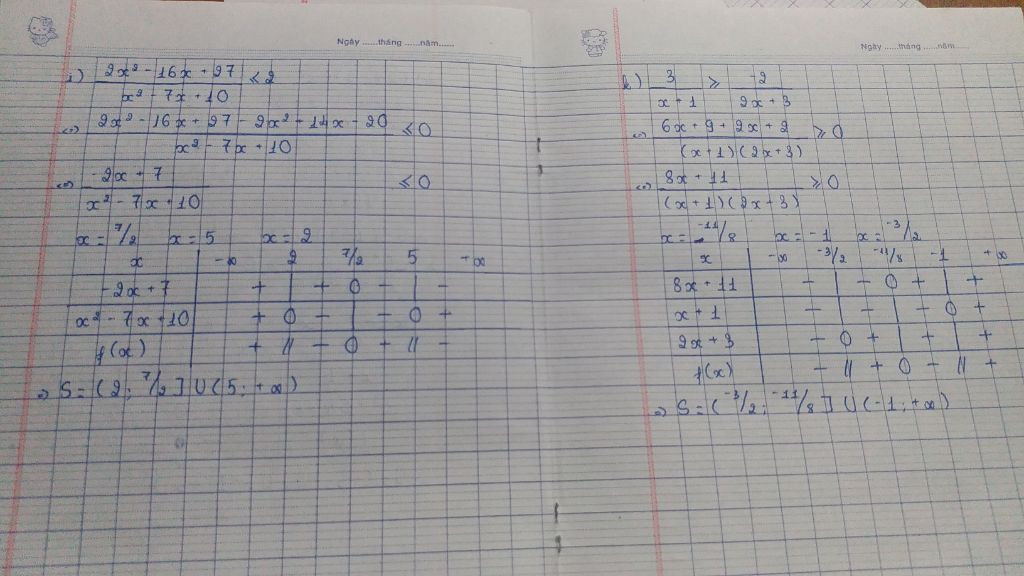 Ngày ......tháng ......năm......
i) (2x² - 16x + 27)/(x² - 7x + 10) ≤ 2
<=> (2x² - 16x + 27 - 2x² + 14x - 20)/(x² - 7x + 10) ≤ 0
<=> (-2x + 7)/(x² - 7x + 10) ≤ 0
x = 7/2 x = 5 x = 2
x | -∞ 2 7/2 5 +∞
-2x + 7 | + | + 0 - | -
x² - 7x + 10 | + 0 - | - 0 +
f(x) | + || - 0 + || -
=> S = (2; 7/2] U (5; +∞)
Ngày ......tháng ......năm......
k) 3/(x + 1) ≥ -2/(2x + 3)
<=> (6x + 9 + 2x + 2)/((x + 1)(2x + 3)) ≥ 0
<=> (8x + 11)/((x + 1)(2x + 3)) ≥ 0
x = -11/8 x = -1 x = -3/2
x | -∞ -3/2 -11/8 -1 +∞
8x + 11 | - | - 0 + | +
x + 1 | - | - | - 0 +
2x + 3 | - 0 + | + | +
f(x) | - || + 0 - || +
=> S = (-3/2; -11/8] U (-1; +∞)